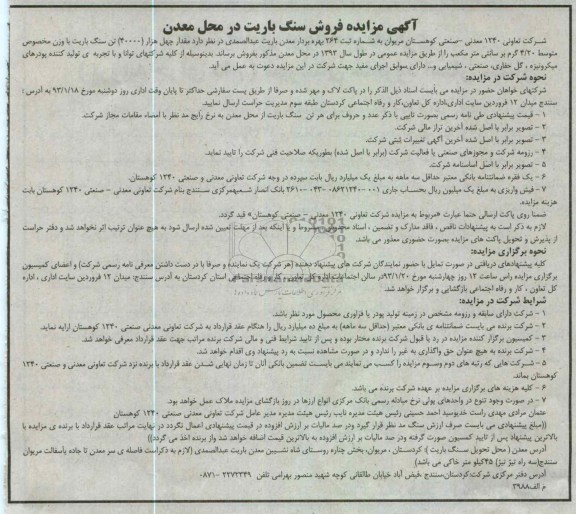 آگهی مزایده فروش سنگ باریت در محل معدن
شرکت تعاونی ۱۲۴۰ معدنی -صنعتی کوهستان مریوان به شماره ثبت ۲۶۴ بهره بردار معدن باریت عبدالصمدی در نظر دارد مقدار چهل هزار (۴۰۰۰۰) تن سنگ باریت با وزن مخصوص
متوسط ۴/۲۰ گرم بر سانتی متر مکعب را از طریق مزایده عمومی در طول سال ۱۳۹۳ در محل معدن مذکور بفروش برساند. بدینوسیله از کلیه شرکتهای توانا و با تجربه ی تولید کننده پودرهای
میکرونیزه ، گل حفاری، صنعتی ، شیمیایی و... دارای سوابق اجرای مفید جهت شرکت در این مزایده دعوت به عمل می آید.
نحوه شرکت در مزایده:
شرکتهای خواهان حضور در مزایده می بایست اسناد ذیل الذکر را در پاکت لاک و مهر شده و صرفا از طریق پست سفارشی حداکثر تا پایان وقت اداری روز دوشنبه مورخ ۹۳/۱/۱۸ به آدرس :
سنندج میدان ۱۲ فروردین سایت اداری،اداره کل تعاون،کار و رفاه اجتماعی کردستان طبقه سوم مدیریت حراست ارسال نمایند.
۱ – قیمت پیشنهادی طی نامه رسمی بصورت تایپی با ذکر عدد و حروف برای هر تن سنگ باریت از محل معدن به نرخ رایج مد نظر با امضاء مقامات مجاز شرکت.
۲ – تصویر برابر با اصل شده آخرین تراز مالی شرکت.
۳ – تصویر برابر با اصل شده آخرین آگهی تغییرات ثبتی شرکت.
۴ – رزومه شرکت و مجوزهای صنعتی یا فعالیت شرکت (برابر با اصل شده) بطوریکه صلاحیت فنی شرکت را تایید نماید.
۵ – تصویر برابر با اصل اساسنامه شرکت.
۶ – یک فقره ضمانتنامه بانکی معتبر حداقل سه ماهه به مبلغ یک میلیارد ریال بابت سپرده در وجه شرکت تعاونی معدنی و صنعتی ۱۲۴۰ کوهستان.
۷ – فیش واریزی به مبلغ یک میلیون ریال بحساب جاری ۰۰۱-۰۸۶۳۱۲۴۰-۰۴۳-۲۶۱۰ بانک انصار شعبه‌مرکزی سنندج بنام شرکت تعاونی معدنی – صنعتی ۱۲۴۰ کوهستان بابت
هزینه مزایده.
ضمنا روی پاکت ارسالی حتما عبارت «مربوط به مزایده شرکت تعاونی ۱۲۴۰ معدنی – صنعتی کوهستان» قید گردد.
لازم به ذکر است به پیشنهادات ناقص ، فاقد مدارک و تضمین ، اسناد مخدوش، مشروط و یا اینکه بعد از مهلت تعیین شده ارسال شود به هیچ عنوان ترتیب اثر نخواهد شد و دفتر حراست
از پذیرش و تحویل پاکت های مزایده بصورت حضوری معذور می باشد.
نحوه برگزاری مزایده:
کلیه پیشنهادهای دریافتی در صورت تمایل با حضور نمایندگان شرکت های پیشنهاد دهنده (هر شرکت یک نماینده و صرفا با در دست داشتن معرفی نامه رسمی شرکت) و اعضای کمیسیون
برگزاری مزایده راس ساعت ۱۲ روز چهارشنبه مورخ ۹۳/۱/۲۰ در سالن اجتماعات اداره کل تعاون ، کار و رفاه اجتماعی استان کردستان به آدرس سنندج: میدان ۱۲ فروردین سایت اداری ، اداره
کل تعاون ، کار و رفاه اجتماعی بازگشایی و برگزار خواهد شد.
شرایط شرکت در مزایده:
۱ – شرکت دارای سابقه و رزومه مشخص در زمینه تولید پودر یا فراوری محصول مورد نظر باشد.
۲ – شرکت برنده می بایست ضمانتنامه ی بانکی معتبر (حداقل سه ماهه) به مبلغ ده میلیارد ریال را هنگام عقد قرارداد به شرکت تعاونی معدنی صنعتی ۱۲۴۰ کوهستان ارایه نماید.
۳ – کمیسیون برگزار کننده مزایده در رد یا قبول شرکت برنده مختار بوده و پس از تایید شرایط فنی و مالی شرکت برنده مراتب جهت عقد قرارداد معرفی خواهد شد.
۴ – شرکت برنده به هیچ عنوان حق واگذاری به غیر را ندارد و در صورت مشاهده نسبت به رد پیشنهاد وی اقدام خواهد شد.
۵ – شرکت هایی که رتبه های دوم وسوم مزایده را کسب می نمایند می بایست تضمین بانکی آنان تا زمان نهایی شدن عقد قرارداد با برنده نزد شرکت تعاونی معدنی و صنعتی ۱۲۴۰
کوهستان بماند.
۶ – کلیه هزینه های برگزاری مزایده بر عهده شرکت برنده می باشد.
۷ – در صورت وجود تنوع در واحدهای پولی نرخ مبادله رسمی بانک مرکزی انواع ارزها در روز بازگشای مزایده ملاک عمل خواهد بود.
عثمان مرادی مهدی راست خدیوسید احمد حسینی رئیس هیئت مدیره نایب رئیس هیئت مدیره مدیر عامل شرکت تعاونی معدنی صنعتی ۱۲۴۰ کوهستان
((مبلغ پیشنهادی می بایست صرف ارزش سنگ مد نظر قرار گیرد ودر صد مالیات بر ارزش افزوده در قیمت پیشنهادی اعمال نگردد در نهایت مراتب عقد قرارداد با برنده ی مزایده با
بالاترین پیشنهاد پس از تایید کمسیون صورت گرفته ودر صد مالیات بر ارزش افزوده به بالاترین قیمت اضافه خواهد شد واز برنده اخذ می گردد))
آدرس معدن ( محل تحویل سنگ باریت ): کردستان ، مریوان، بخش چناره روستای شاه نشین معدن باریت عبدالصمدی (لازم به ذکراست فاصله ی سر معدن تا جاده یآسفالت مریوان
سنندج(سه راه تیژ تیژ) ۴۵کیلو متر خاکی می باشد)
آدرس دفتر مرکزی شرکت:کردستان،سنندج خیابان فیض آباد خیابان طالقانی کوچه شهید منصور بهرامی تلفن ۲۲۷۲۳۴۹-۰۸۷۱
م الف۲۹۸۸